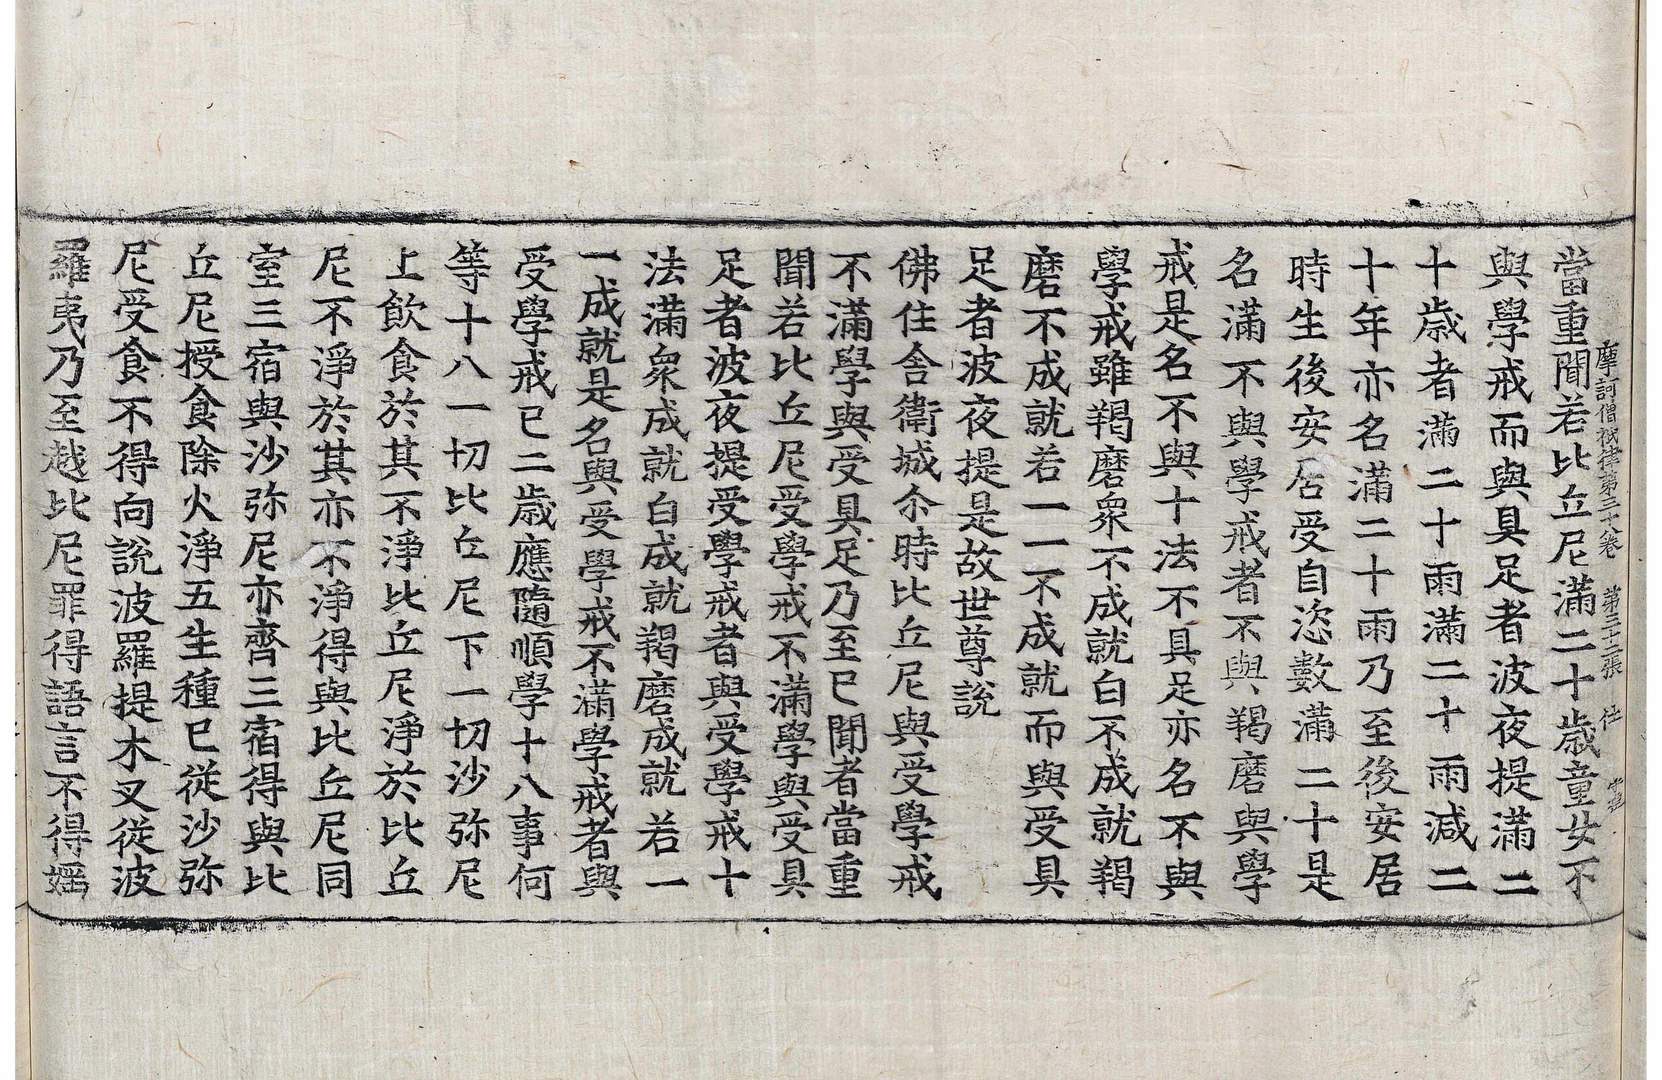 摩訶僧祇律第三十八卷　第三十二張　仕
當重聞若比丘尼滿二十歲童女不
與學戒而與具足者波夜提滿二
十歲者滿二十雨滿二十雨減二
十年亦名滿二十雨乃至後安居
時生後安居受自恣數滿二十是
名滿不與學戒者不與羯磨與學
戒是名不與十法不具足亦名不與
學戒雖羯磨衆不成就白不成就羯
磨不成就若一一不成就而與受具
足者波夜提是故世尊說
佛住舍衛城尒時比丘尼與受學戒
不滿學與受具足乃至已聞者當重
聞若比丘尼受學戒不滿學與受具
足者波夜提受學戒者與受學戒十
法滿衆成就白成就羯磨成就若一
一成就是名與受學戒不滿學戒者與
受學戒已二歲應隨順學十八事何
等十八一切比丘尼下一切沙弥尼
上飲食於其不淨比丘尼淨於比丘
尼不淨於其亦不淨得與比丘尼同
室三宿與沙弥尼亦齊三宿得與比
丘尼授食除火淨五生種已從沙弥
尼受食不得向說波羅提木叉從波
羅夷乃至越比尼罪得語言不得婬